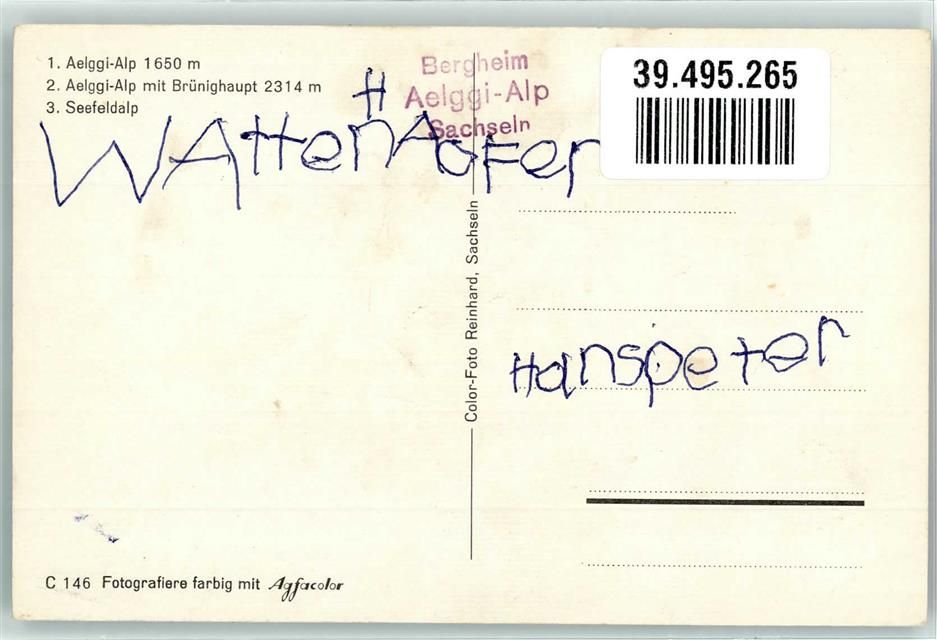 1. Aelggi-Alp 1650 m
2. Aelggi-Alp mit Brünighaupt 2314 m
3. Seefeldalp
Bergheim
Aelggi-Alp
Sachseln
39.495.265
H
WAttenHofer
Color-Foto Reinhard, Sachseln
Hanspeter
C 146 Fotografiere farbig mit Agfacolor